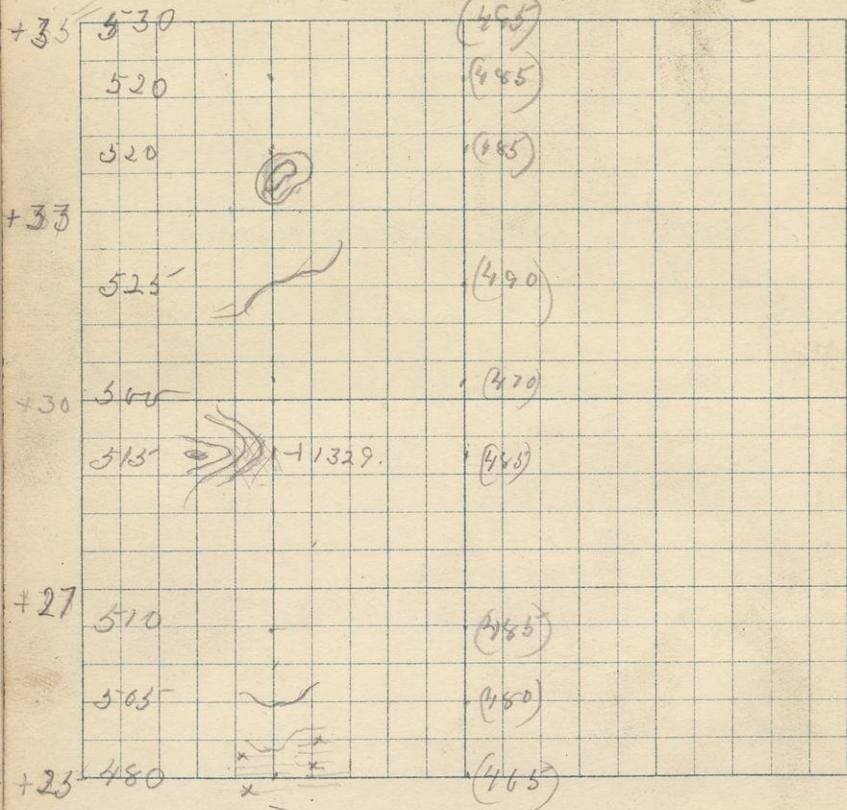 +35 530 (485)
520 (485)
520 (485)
+33
525 (490)
+30 500 (470)
515 +1329. (485)
+27
510 (485)
505 (480)
+25 480 (465)